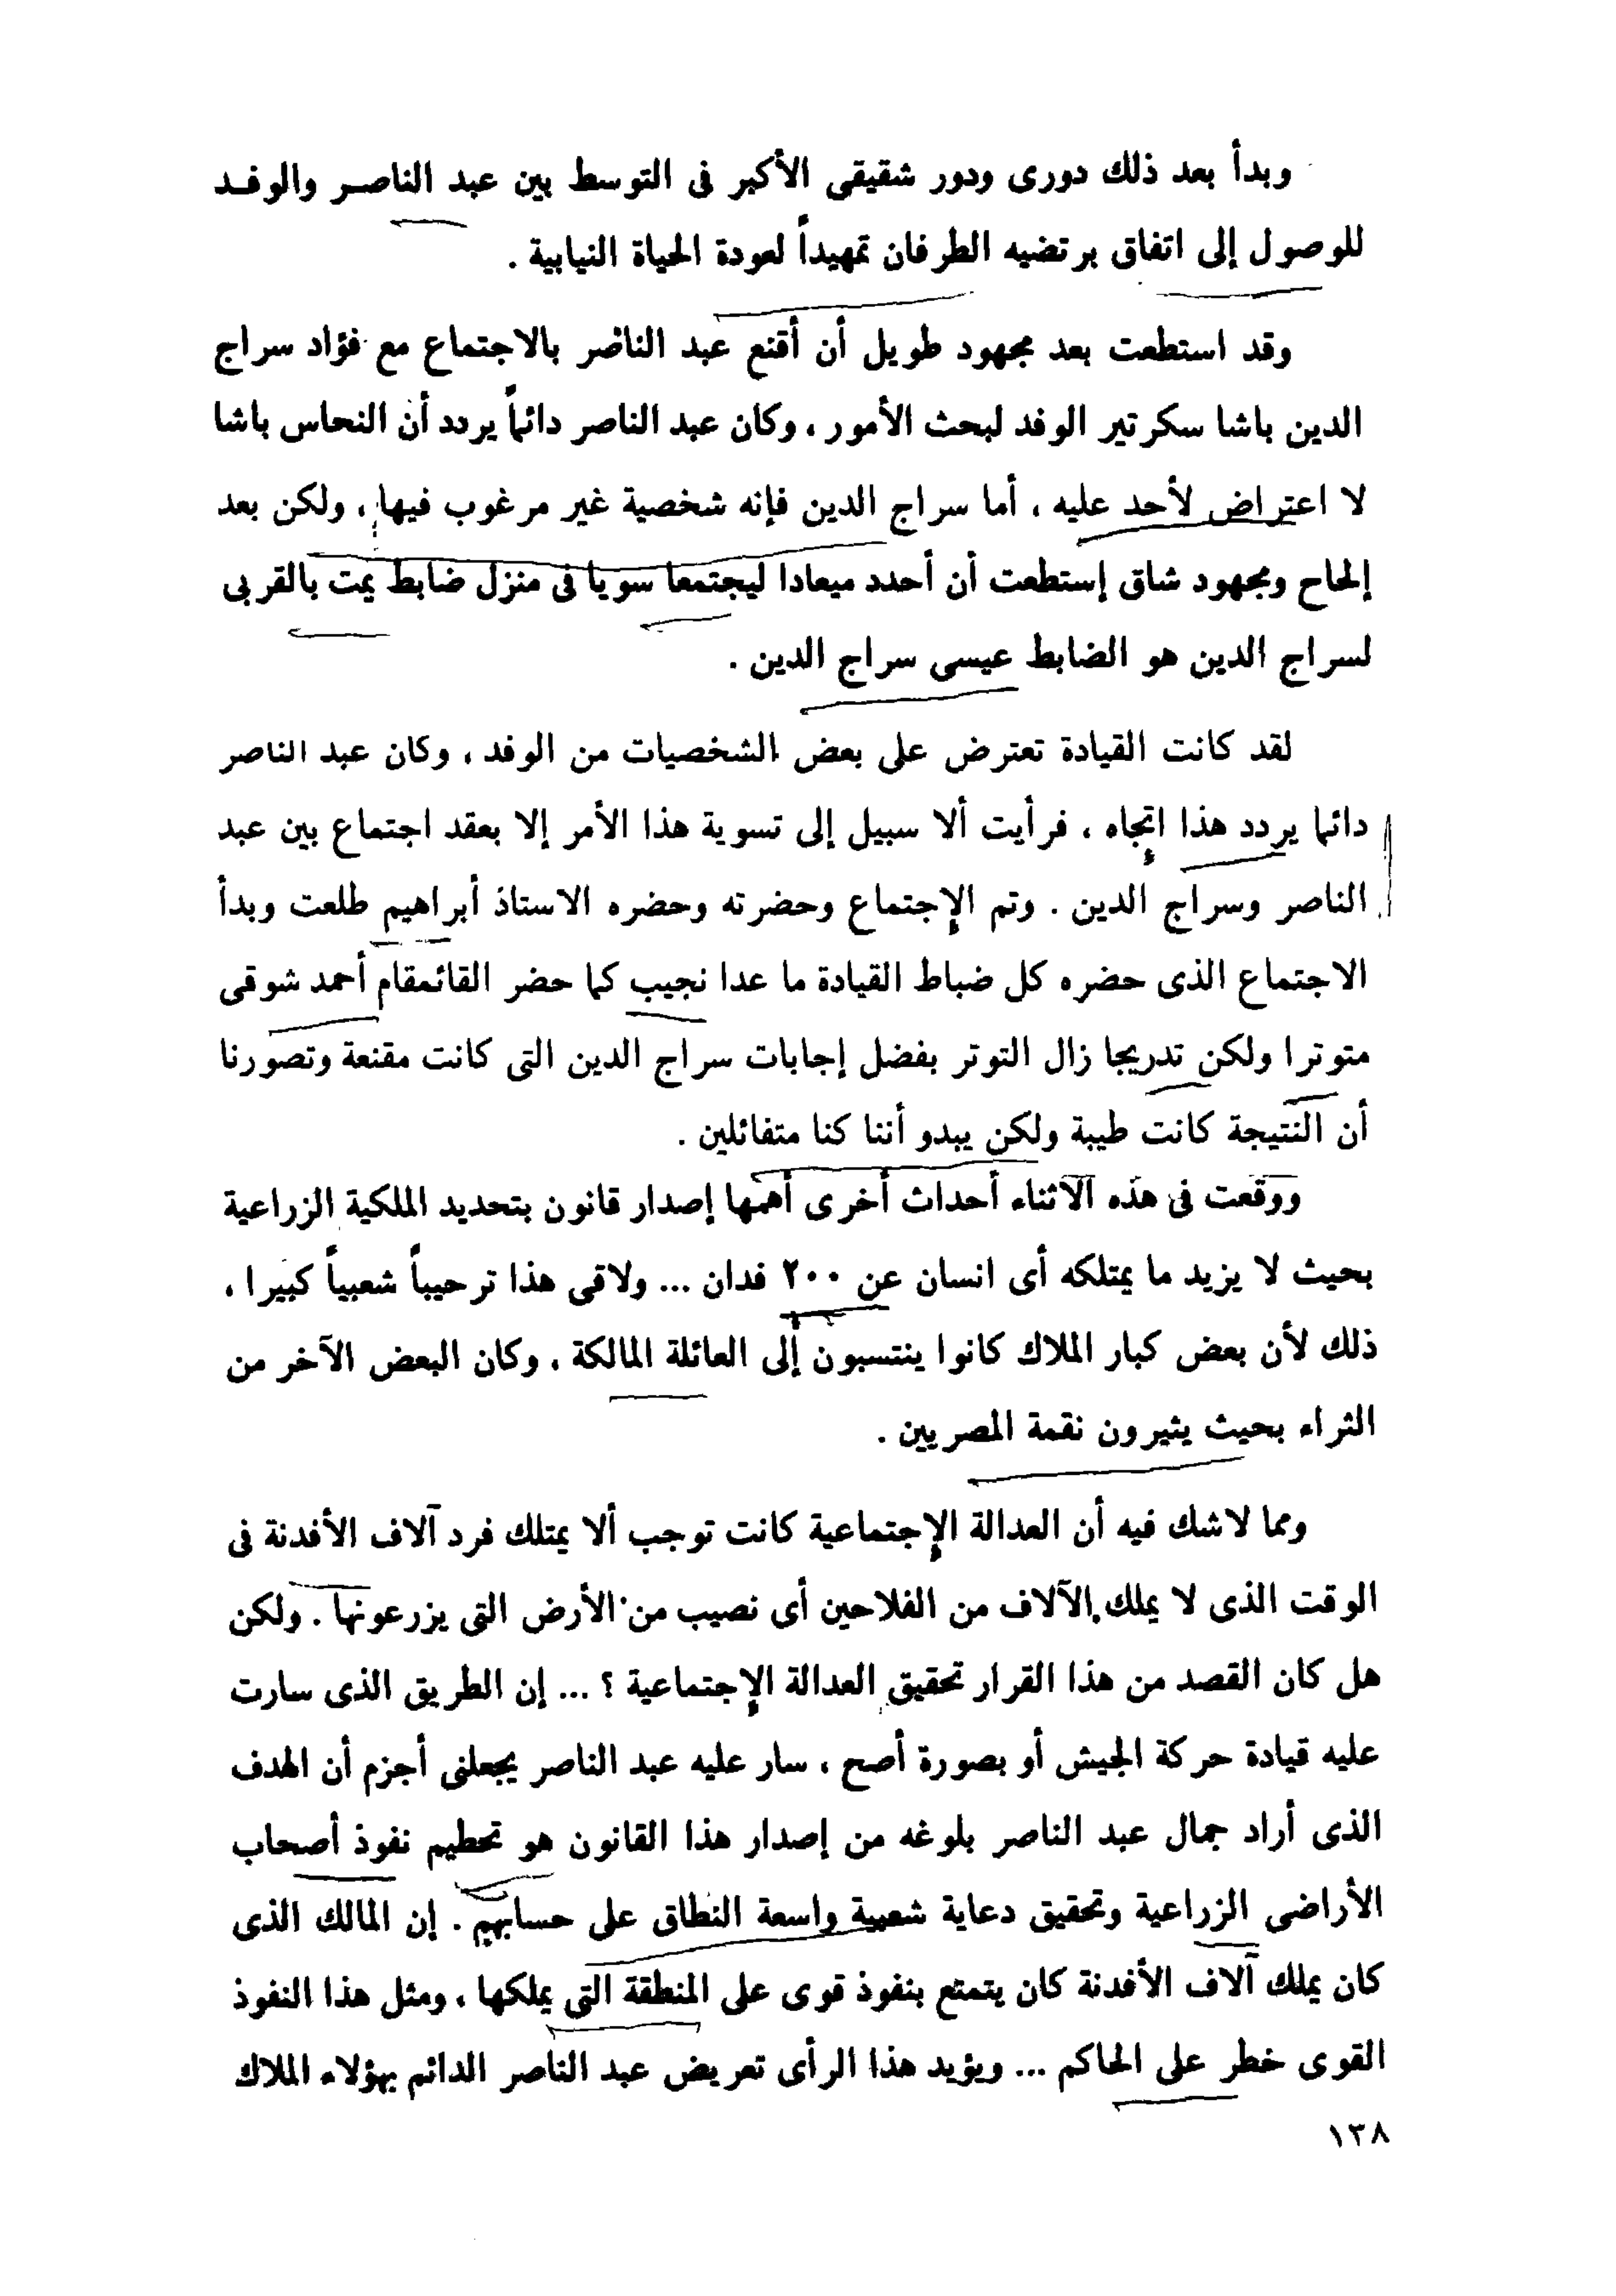 وبدأ بعد ذلك دورى ودور شقيقى الأكبر فى التوسط بين عبد الناصر والوفد
للوصول إلى اتفاق برتضيه الطرفان تمهيداً لعودة الحياة النيابية .
وقد استطعت بعد مجهود طويل أن أقنع عبد الناصر بالاجتماع مع فؤاد سراج
الدين باشا سكرتير الوفد لبحث الأمور ، وكان عبد الناصر دائماً يردد أن النحاس باشا
لا اعتراض لأحد عليه ، أما سراج الدين فإنه شخصية غير مرغوب فيها ، ولكن بعد
إلحاح ومجهود شاق إستطعت أن أحدد ميعادا ليجتمعا سويا فى منزل ضابط يمت بالقربى
لسراج الدين هو الضابط عيسى سراج الدين .
لقد كانت القيادة تعترض على بعض الشخصيات من الوفد ، وكان عبد الناصر
دائما يردد هذا اتجاه ، فرأيت ألا سبيل إلى تسوية هذا الأمر إلا بعقد اجتماع بين عبد
الناصر وسراج الدين . وتم الإجتماع وحضرته وحضره الاستاذ أبراهيم طلعت وبدأ
الاجتماع الذى حضره كل ضباط القيادة ما عدا نجيب كما حضر القائمقام أحمد شوقى
متوترا ولكن تدريجا زال التوتر بفضل إجابات سراج الدين التى كانت مقنعة وتصورنا
أن النتيجة كانت طيبة ولكن يبدو أننا كنا متفائلين .
ووقعت فى هذه الآثناء أحداث أخرى أهمها إصدار قانون بتحديد الملكية الزراعية
بحيث لا يزيد ما يمتلكه أى انسان عن ٢٠٠ فدان ... ولاقى هذا ترحيباً شعبياً كبيرا ،
ذلك لأن بعض كبار الملاك كانوا ينتسبون إلى العائلة المالكة ، وكان البعض الآخر من
الثراء بحيث يثيرون نقمة المصريين .
ومما لاشك فيه أن العدالة الإجتماعية كانت توجب ألا يمتلك فرد آلاف الأفدنة فى
الوقت الذى لا يملك الآلاف من الفلاحين أى نصيب من الأرض التى يزرعونها . ولكن
هل كان القصد من هذا القرار تحقيق العدالة الإجتماعية ؟ ... إن الطريق الذى سارت
عليه قيادة حركة الجيش أو بصورة أصح ، سار عليه عبد الناصر يجعلنى أجزم أن الهدف
الذى أراد جمال عبد الناصر بلوغه من إصدار هذا القانون هو تحطيم نفوذ أصحاب
الأراضى الزراعية وتحقيق دعاية شعبية واسعة النطاق على حسابهم . إن المالك الذى
كان يملك آلاف الأفدنة كان يتمتع بنفوذ قوى على المنطقة التى يملكها ، ومثل هذا النفوذ
القوى خطر على الحاكم ... ويؤيد هذا الرأى تعريض عبد الناصر الدائم بهؤلاء الملاك
١٣٨